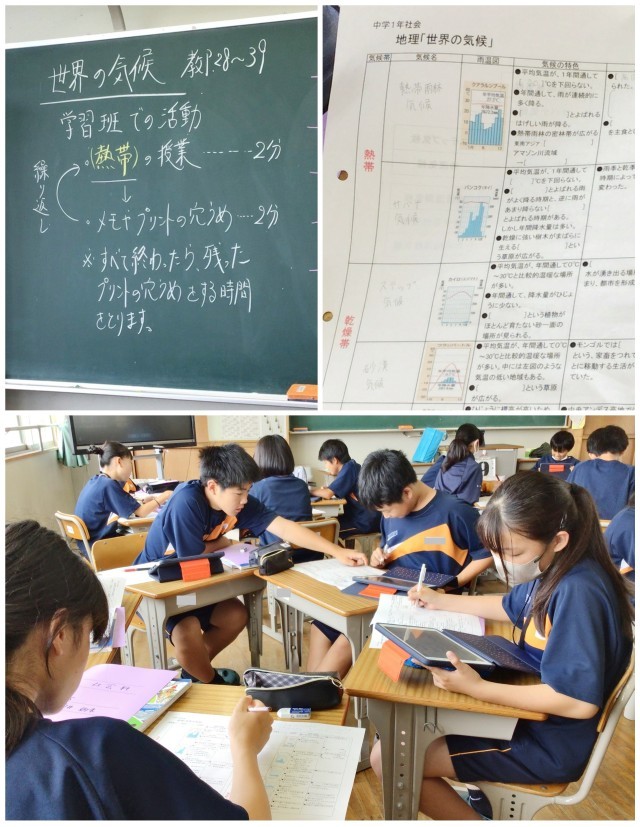 世界の気候 教P.28〜39
学習班での活動
(熱帯)の授業………2分
↓
繰り返し
・メモやプリントの穴うめ…2分
※すべて終わったら、残った
プリントの穴うめをする時間
をとります。
中学1年社会
地理「世界の気候」
気候帯
気候名
雨温図
気候の特色
熱帯
熱帯雨林
気候
●平均気温が、1年間通して
]℃を下回らない。
●年間通して、雨が連続的に
多く降る。
●[ ]とよばれる
はげしい雨が降る。
●熱帯雨林の密林帯が広がる
東南アジア[ ]
アマゾン川流域
サバナ
気候
●平均気温が、1年間通して
[ ]℃を下回らない。
●[ ]とよばれる雨
がよく降る時期と、逆に雨が
あまり降らない[ ]
とよばれる時期がある。
しかし年間降水量は多い。
●乾燥に強い樹木がまばらに
生える[ ]とい
う草原が広がる。
●雨季と乾季
時期によって
変わった。
乾燥帯
ステップ
気候
●平均気温が、年間通して0℃
〜30℃と比較的温暖な場所
が多い。
●年間通して、降水量がひじょ
うに少ない。
●[ ]という植物が
ほとんど育たない砂一面の
場所が見られる。
水が湧き出る場所
まり、都市を形成
砂漠
気候
●平均気温が、年間通して0℃
〜30℃と比較的温暖な場所
が多い。中には左図のような
気温の低い地域もある。
●[ ]という草原
が広がる。
●モンゴルでは[
という、家畜をつれて
とに移動する生活が
ていた。